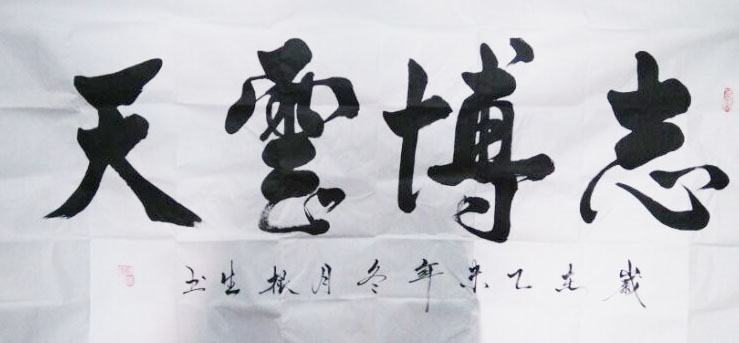 志博雲天
歲在乙未年冬月根生书